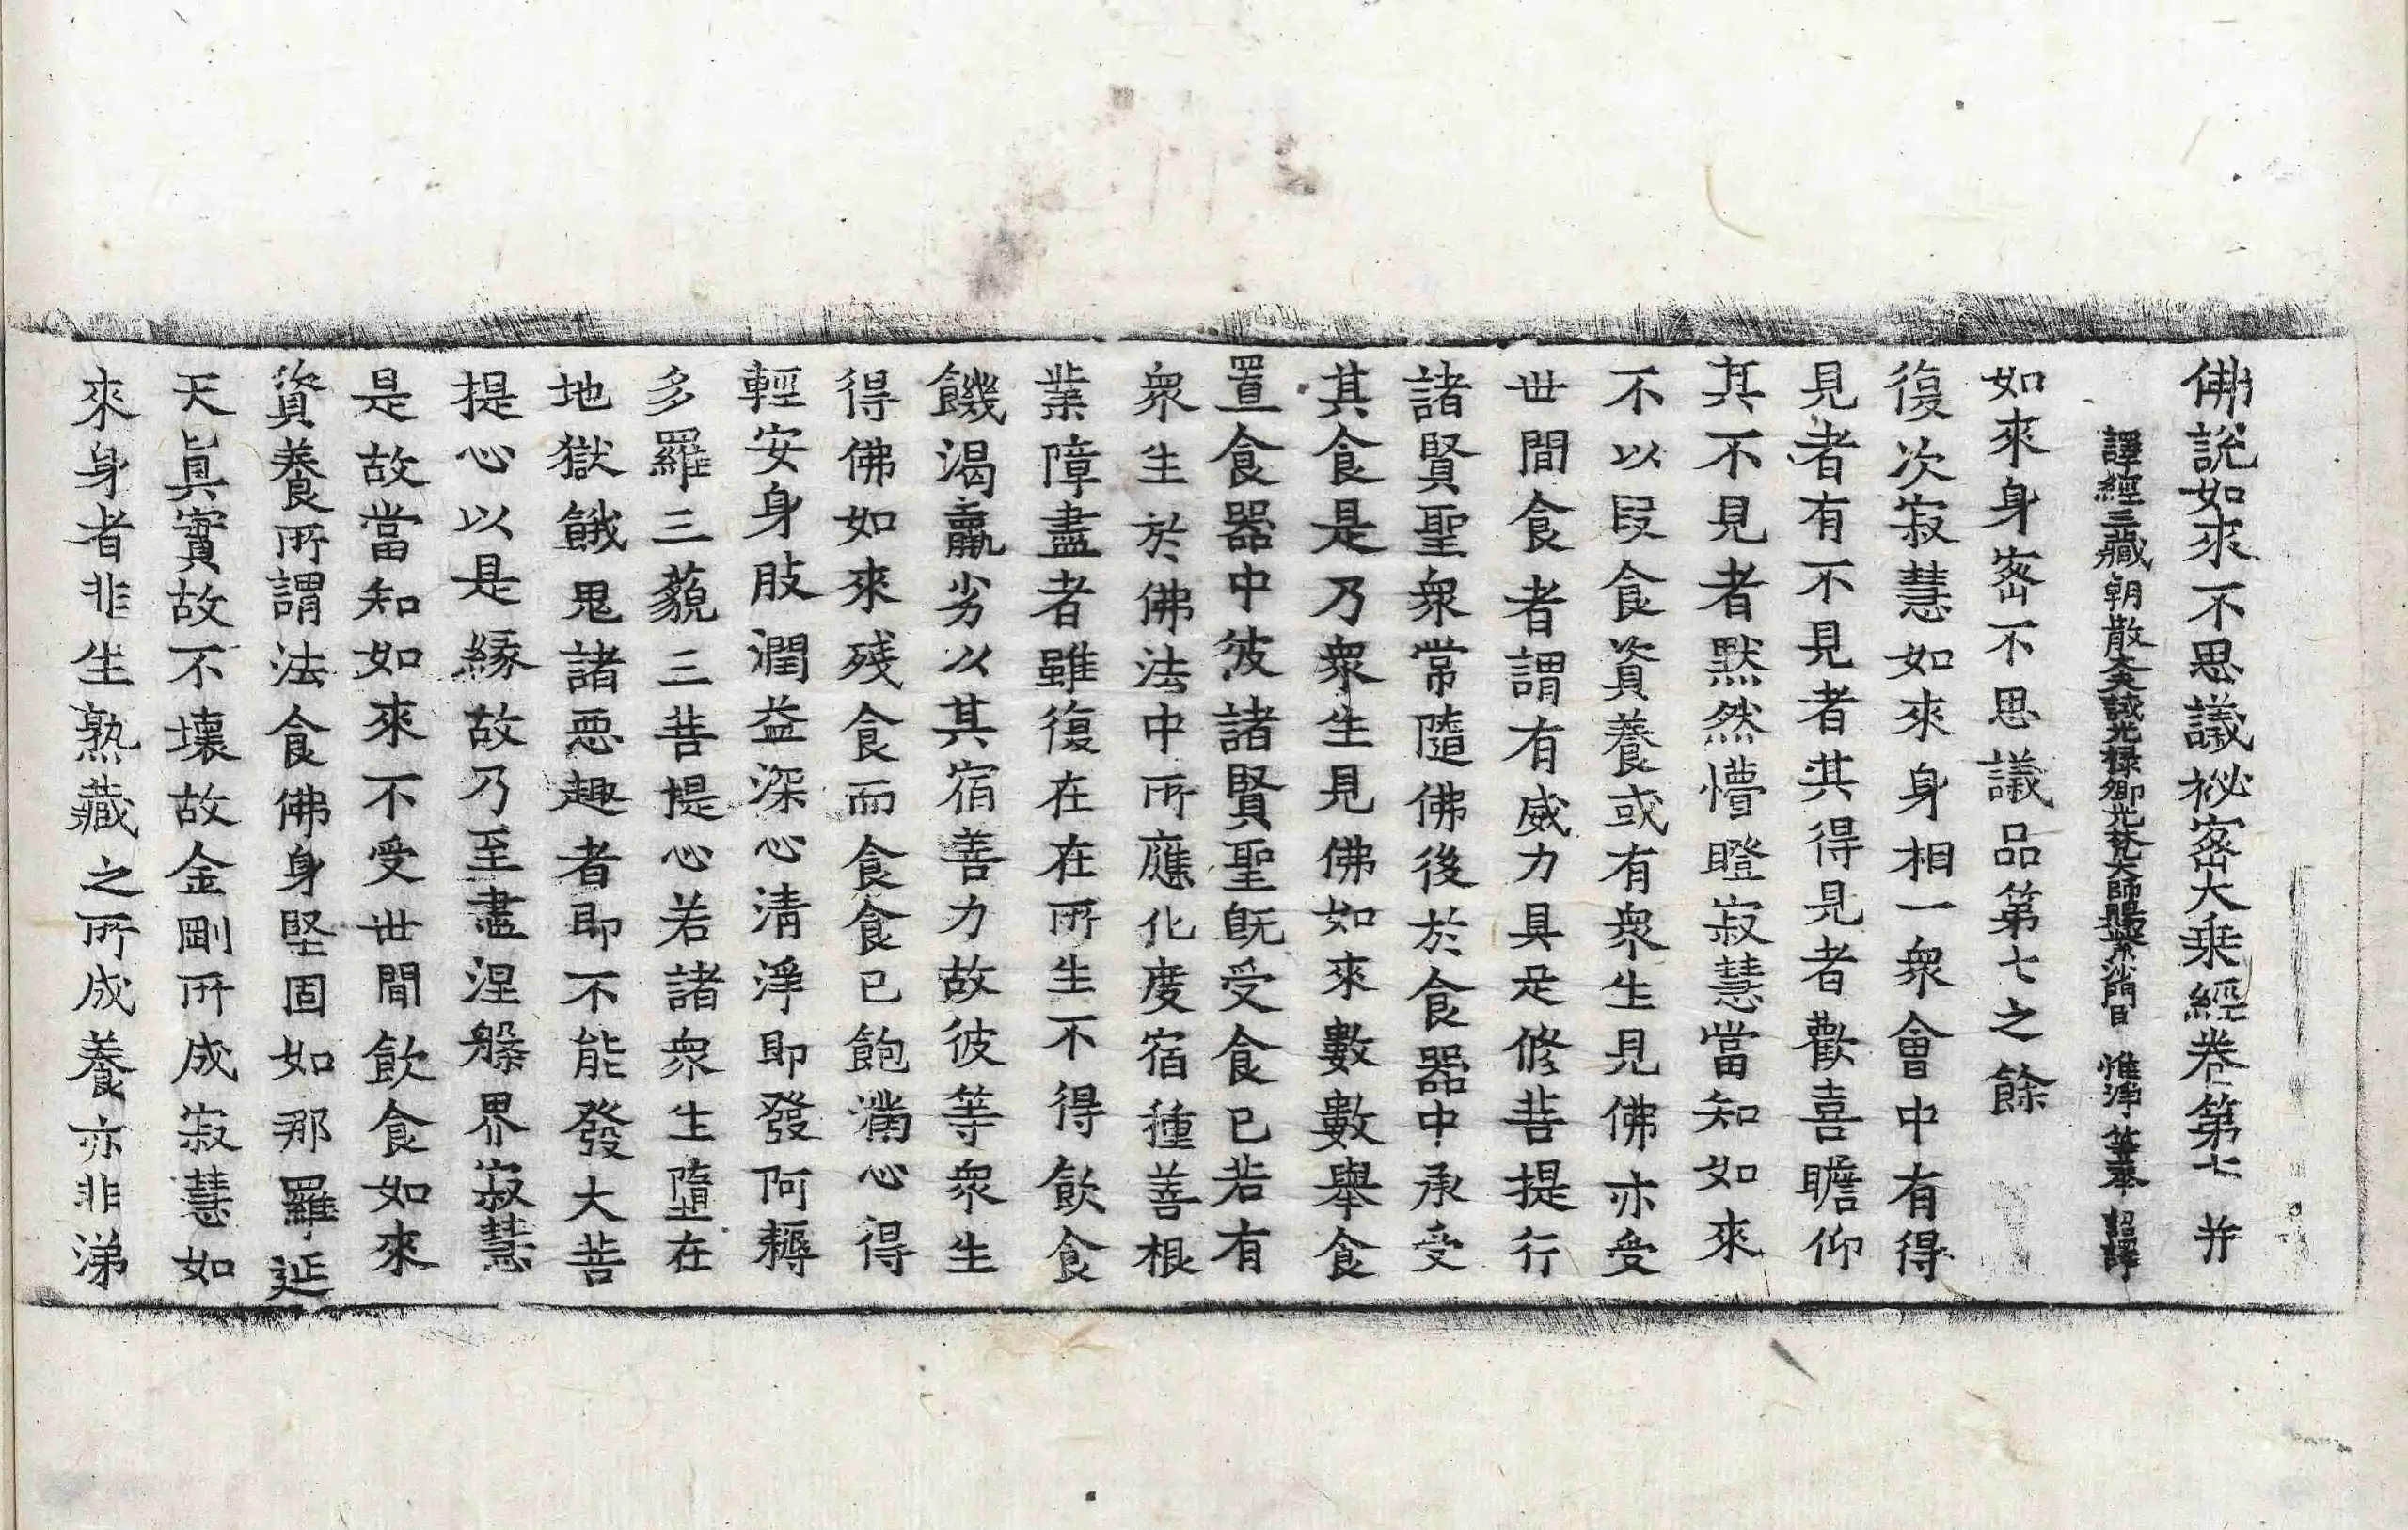 佛說如來不思議祕密大乘經卷第七 并
譯經三藏朝散大夫試光祿卿光梵大師賜紫沙門臣 惟淨 等奉 詔譯
如來身密不思議品第七之餘
復次寂慧如來身相一衆會中有得
見者有不見者其得見者歡喜瞻仰
其不見者默然懵瞪寂慧當知如來
不以段食資養或有衆生見佛亦受
世間食者謂有威力具足修菩提行
諸賢聖衆常隨佛後於食器中承受
其食是乃衆生見佛如來數數舉食
置食器中彼諸賢聖旣受食已若有
衆生於佛法中所應化度宿種善根
業障盡者雖復在在所生不得飮食
饑渴羸劣以其宿善力故彼等衆生
得佛如來殘食而食食已飽滿心得
輕安身肢潤益深心淸淨即發阿耨
多羅三藐三菩提心若諸衆生墮在
地獄餓鬼諸惡趣者即不能發大菩
提心以是緣故乃至盡涅槃界寂慧
是故當知如來不受世間飮食如來
資養所謂法食佛身堅固如那羅延
天眞實故不壞故金剛所成寂慧如
來身者非生熟藏之所成養亦非涕